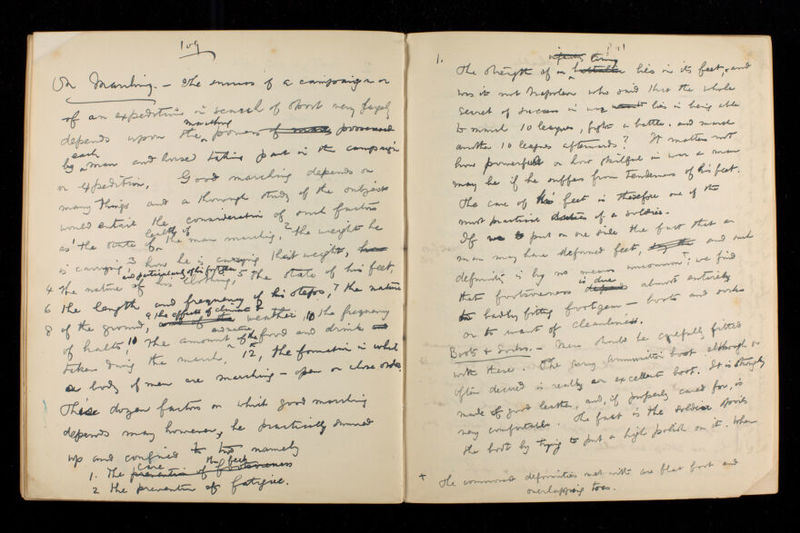 109
On Marching. - The success of a campaign or
of an expedition in search of sport very largely
marching
depends upon the powers of man possessed
each
by man and horse taking part in the campaign
or expedition. Good marching depends on
many things and a thorough study of the subject
would entail the consideration of such factors
health of
as 1 the state of the man marching, 2 the weight he
is carrying 3 how he is carrying that weight,
and particularly of his footgear
4 The nature of his clothing, 5 the state of his feet,
6 The length and frequency of his steps, 7 the nature
8 of the ground, 9 the effects of climate & weather, 10 the frequency
and nature
of halts 10 The amount of the food and drink
taken during the march. 12, the formation in which
a body of men are marching - open or close order
These dozen factors on which good marching
depends may however, be practically summed
up and confined to two namely
care the feet
1. The prevention of footsoreness
2 The prevention of fatigue.
1.
infantry thing
The strength of a battalion lies in its feet, and
was it not Napoleon who said that the whole
secret of success in war lies in being able
to march 10 leagues, fight a battle, and march
another 10 leagues afterwards? It matters not
how powerful or how skilful in war a man
may be if he suffers from tenderness of his feet.
The care of his feet is therefore one of the
most practical duties of a soldier.
If we put on one side the fact that a
man may have deformed feet, and such
deformity is by no means uncommon, we find
is due
that footsoreness depends almost entirely
to badly fitting footgear - boots and socks
or to want of cleanliness.
Boots & Socks. - Men should be carefully fitted
with these. The army ammunition boot although so
often decried is really an excellent boot. It is strongly
made of good leather, and, if properly cared for, is
very comfortable. The fact is the soldier spoils
the boot by trying to put a high polish on it. When
+ The commonest deformities met with are flat foot and
overlapping toes.